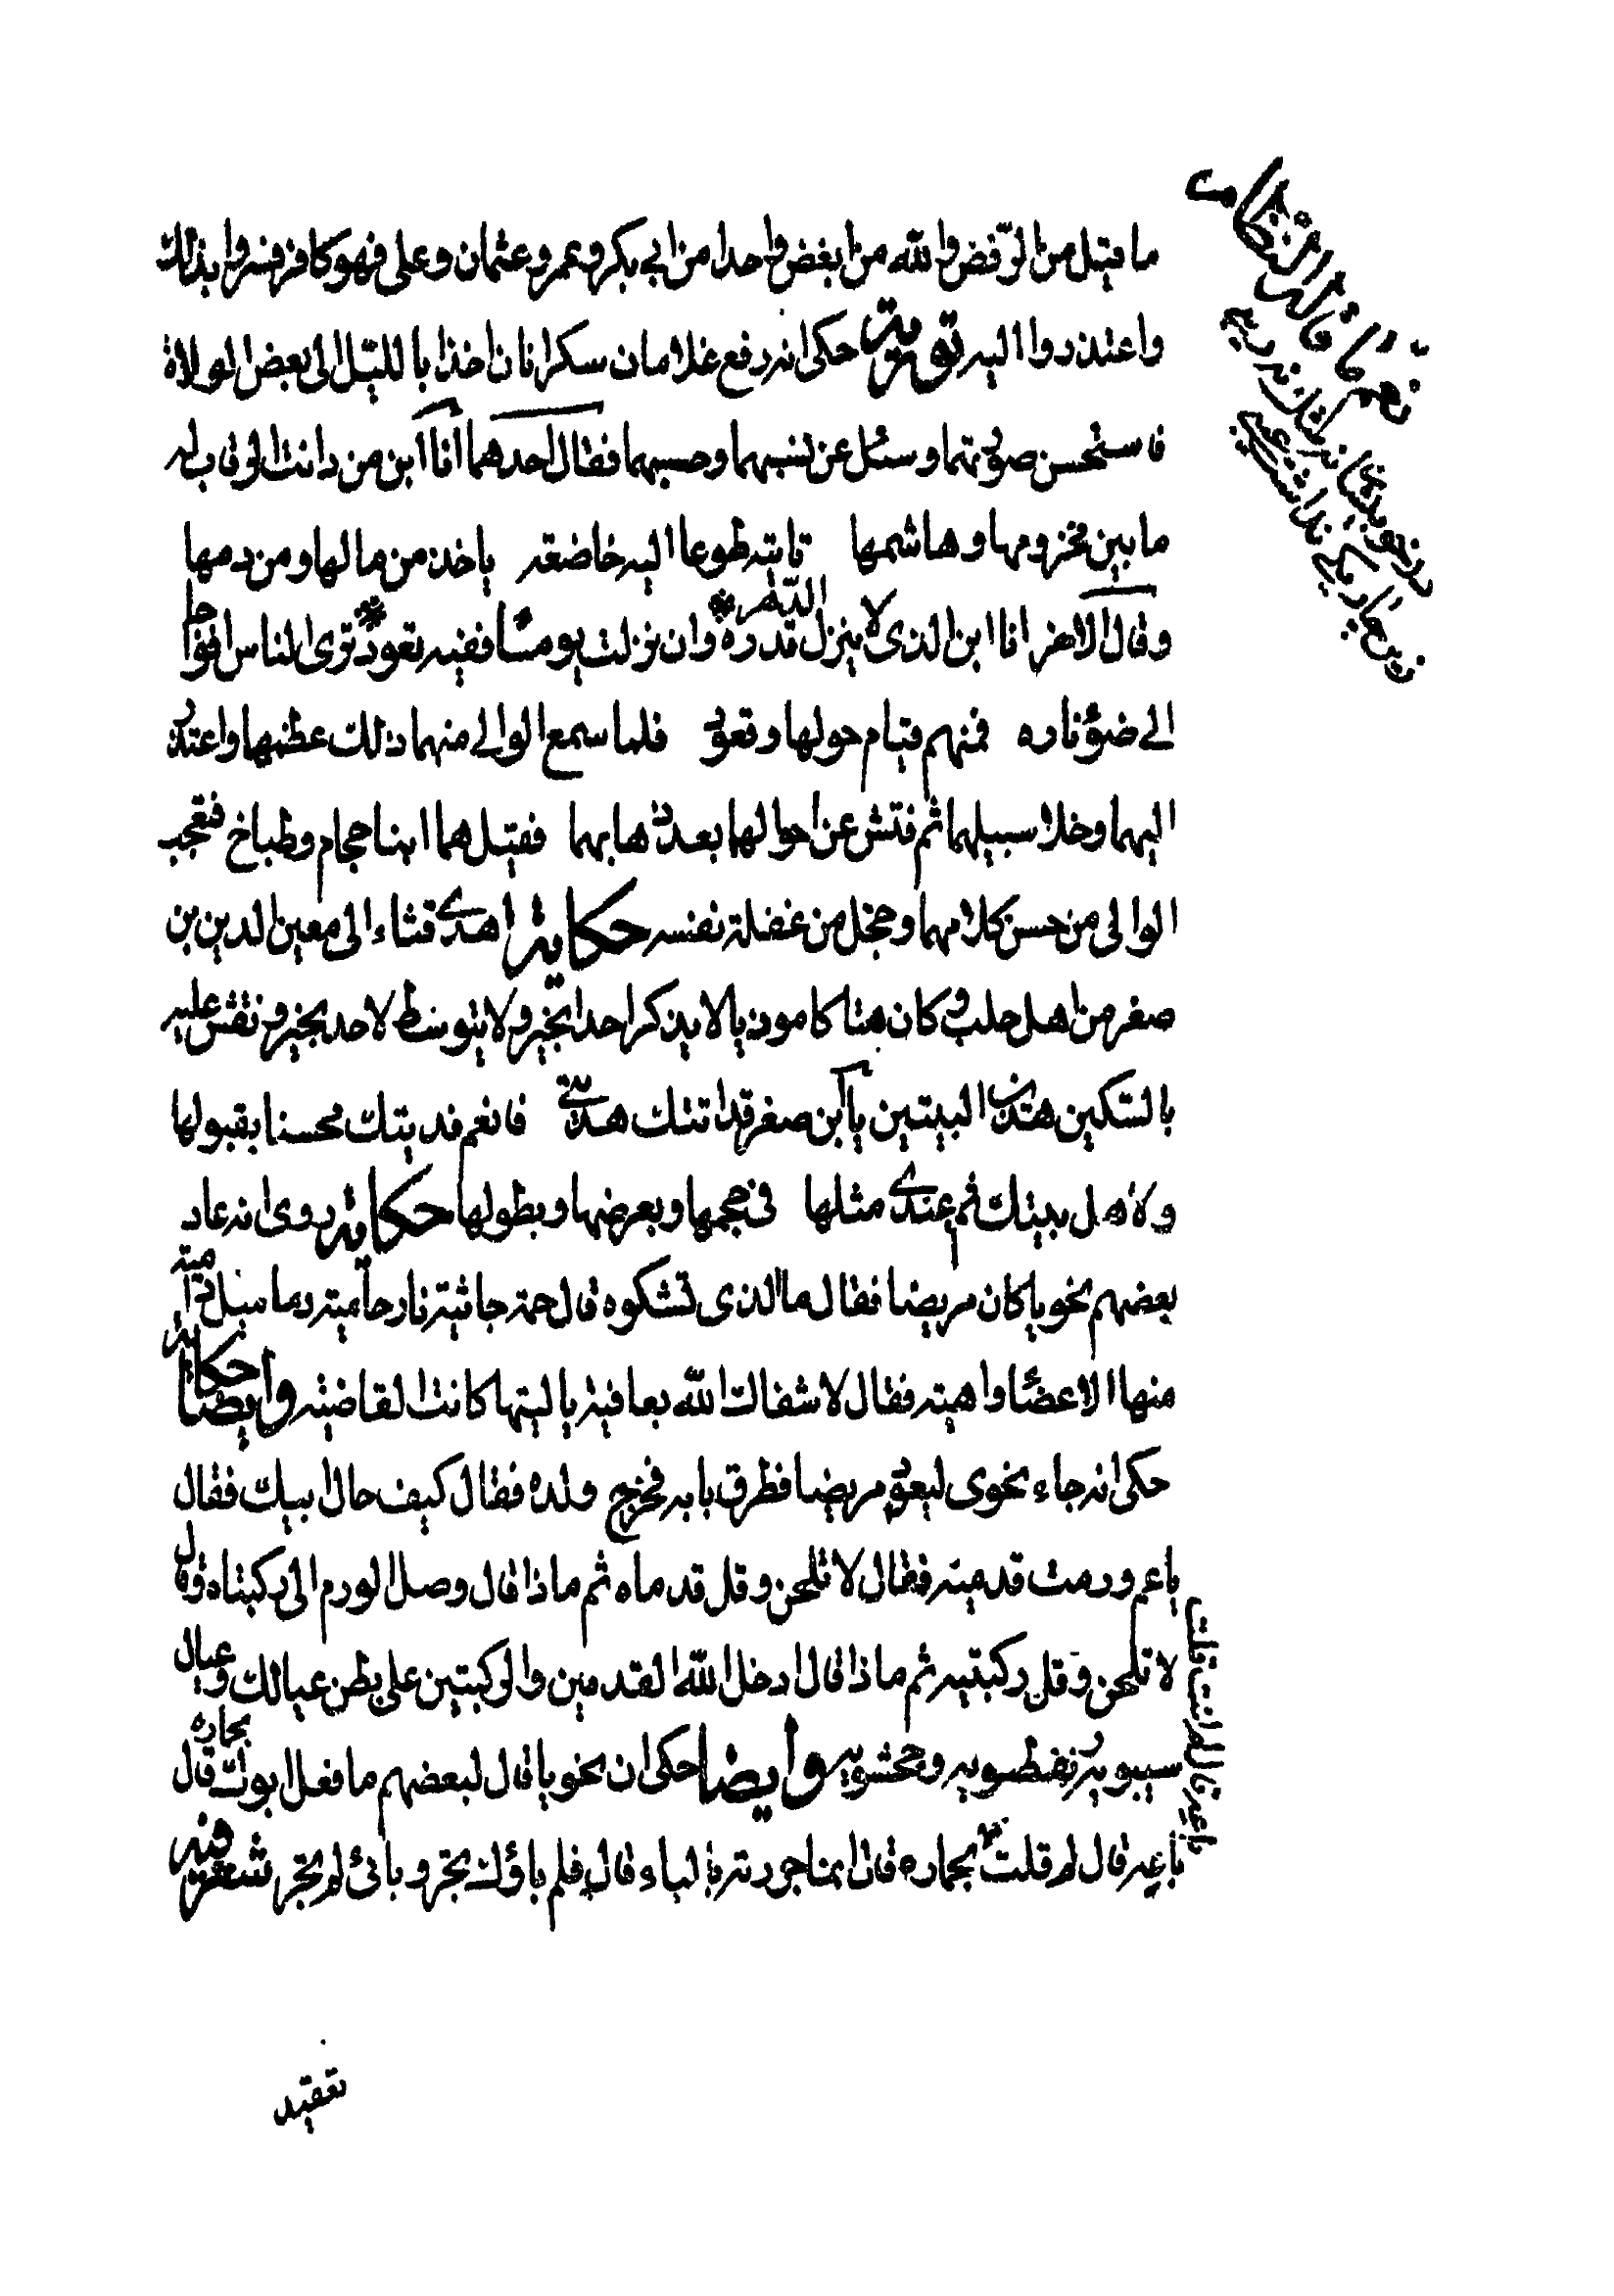 ما قيل من الرفض والله من ابغض واحدا من ابي بكر وعمر وعثمان وعلى فهو كافر فسروا بذلك
واعتذروا اليه تورية حكى انه رفع غلامان سكرانان اخذا بالليل الى بعض الولاة
فاستحسن صورتهما وسئل عن نسبهما وحسبهما فقال احدهما انا ابن من دانت الرقاب له
ما بين مخزومها وهاشمها تاتيه طوعا اليه خاضعة ياخذ من مالها ومن دمها
وقال الاخر انا ابن الذى لا ينزل الدهر قدره وان نزلت يوما فسيه تعود ترى الناس افواجا
الى ضوء ناره فمنهم قيام حولها وقعود فلما سمع الوالي منهما ذلك عظمهما واعتذر
اليهما وخلا سبيلهما ثم فتش عن احوالهما بعد ذهابهما فقيل هما ابنا حجام وطباخ فتعجب
الوالى من حسن كلامهما وخجل من غفلة نفسه حكاية اهدى قثاء الى معين الدين بن
صغر من اهل حلب وكان هتاكا موذيا لا يذكر احدا بخير ولا يتوسط لاحد بخير ونقش عليه
بالسكين هذان البيتين يا ابن صغر قد اتتك هديتي فانعم فديتك محسنا بقبولها
ولاهل بيتك ثم عندى مثلها في حجمها وبعرضها وبطولها حكاية روى انه عاد
بعضهم نحويا كان مريضا فقال ما الذى تشكوه قال حمة جاثية نار حامية
منها الاعضاء واهية فقال لا شفاك الله بعافية يا ليتها كانت القاضية وايضا حكاية
حكى انه جاء نحوى ليعود مريضا فطرق بابه فخرج ولده فقال كيف حال ابيك فقال
يا عم ورمت قدميه فقال لا تلحن وقل قدماه ثم ماذا قال وصل الورم الى ركبتاه وقال
لا تلحن وقل ركبتيه ثم ماذا قال ادخل الله القدمين والركبتين على بطن عيالك وعيال
سيبويه ونفطويه وجحشويه وايضا حكى ان نحويا قال لبعضهم ما فعل ابوك بحماره قال
باعه قال لم قلت بحماره قال انما جررته بالباء قال فلم باؤك تجر وبائى لم تجر شعر فيه
باعه قال لم انت قلت
تعقيد